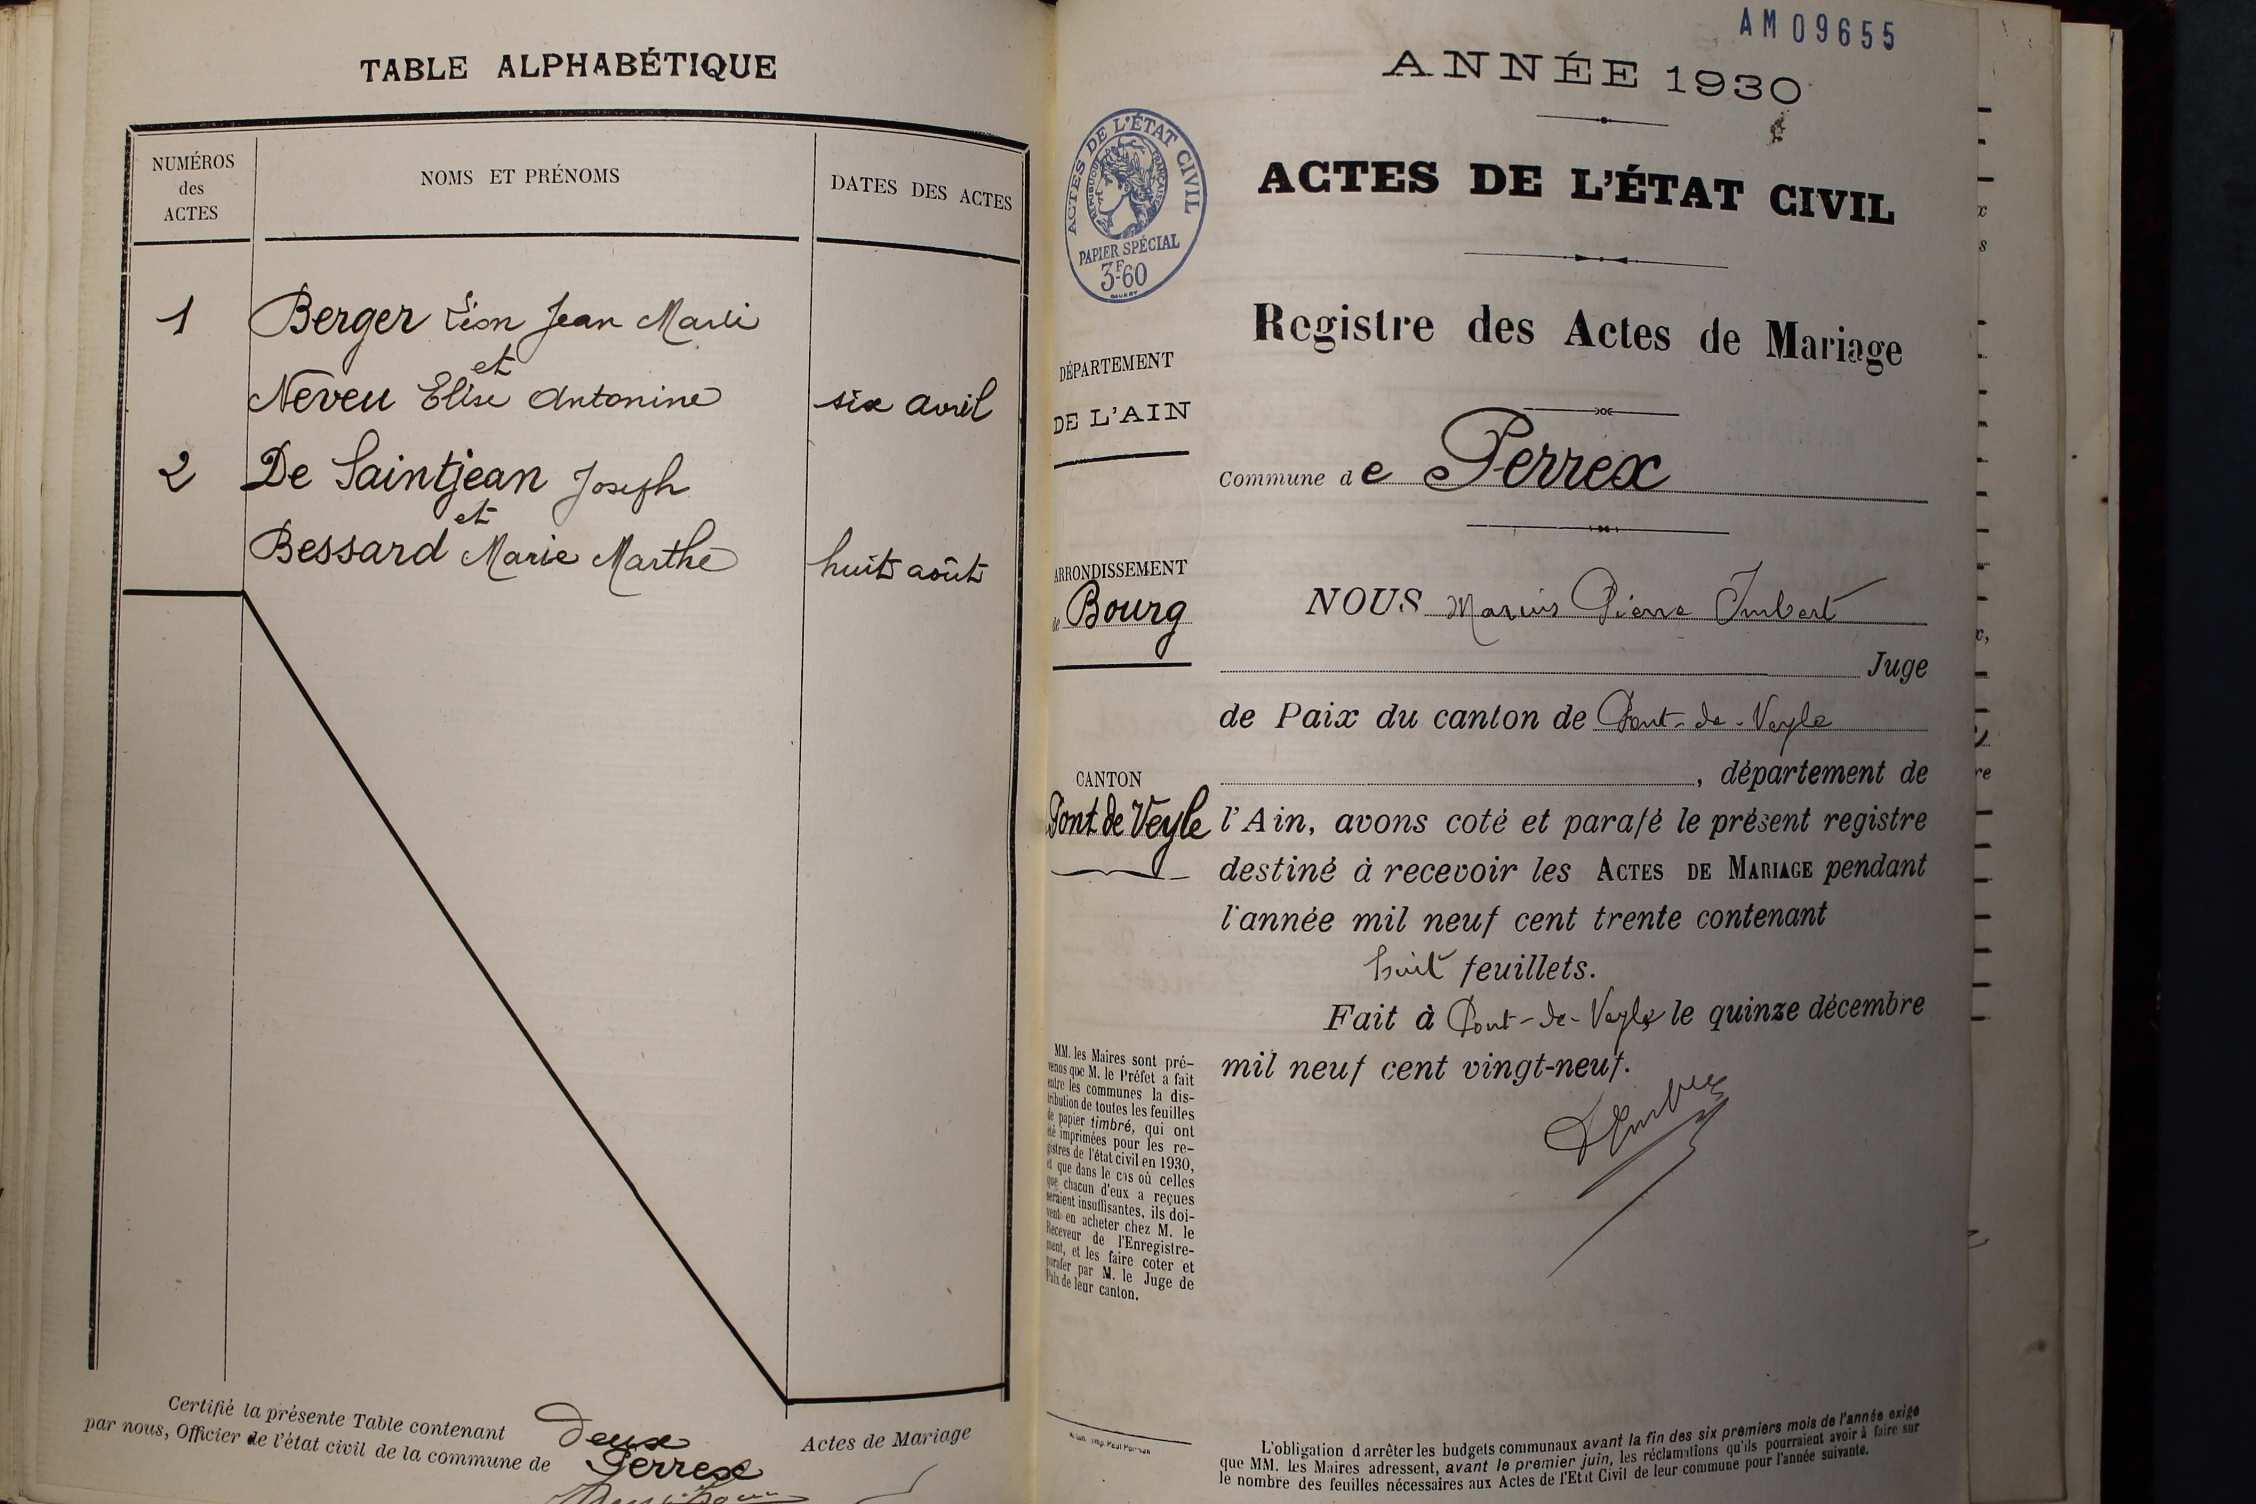 TABLE ALPHABÉTIQUE
NUMÉROS
des
ACTES
NOMS ET PRÉNOMS
DATES DES ACTES
1
Berger Léon Jean Marie
et
Neveu Elise Antonine
six avril
2
De Saintjean Joseph
et
Bessard Marie Marthe
huit août
Certifié la présente Table contenant deux Actes de Mariage
par nous, Officier de l'état civil de la commune de Perrex
AM09655
ANNÉE 1930
ACTES DE L'ÉTAT CIVIL
RÉPUBLIQUE FRANÇAISE
PAPIER SPÉCIAL
3F60
ACTES DE L'ÉTAT CIVIL
Registre des Actes de Mariage
DÉPARTEMENT
DE L'AIN
Commune de Perrex
ARRONDISSEMENT
de Bourg
NOUS Marius Pierre Imbert
Juge
de Paix du canton de Pont-de-Veyle
, département de
CANTON
Pont de Veyle
l'Ain, avons coté et parafé le présent registre
destiné à recevoir les ACTES DE MARIAGE pendant
l'année mil neuf cent trente contenant
huit feuillets.
Fait à Pont-de-Veyle le quinze décembre
mil neuf cent vingt-neuf.
MM. les Maires sont pré-
venus que M. le Préfet a fait
entre les communes la dis-
tribution de toutes les feuilles
de papier timbré, qui ont
été imprimées pour les re-
gistres de l'état civil en 1930,
et que dans le cas où celles
que chacun d'eux a reçues
seraient insuffisantes, ils doi-
vent en acheter chez M. le
Receveur de l'Enregistre-
ment, et les faire coter et
parafer par M. le Juge de
Paix de leur canton.
L'obligation d'arrêter les budgets communaux avant la fin des six premiers mois de l'année exige
que MM. les Maires adressent, avant le premier juin, les réclamations qu'ils pourraient avoir à faire sur
le nombre des feuilles nécessaires aux Actes de l'Etat Civil de leur commune pour l'année suivante.